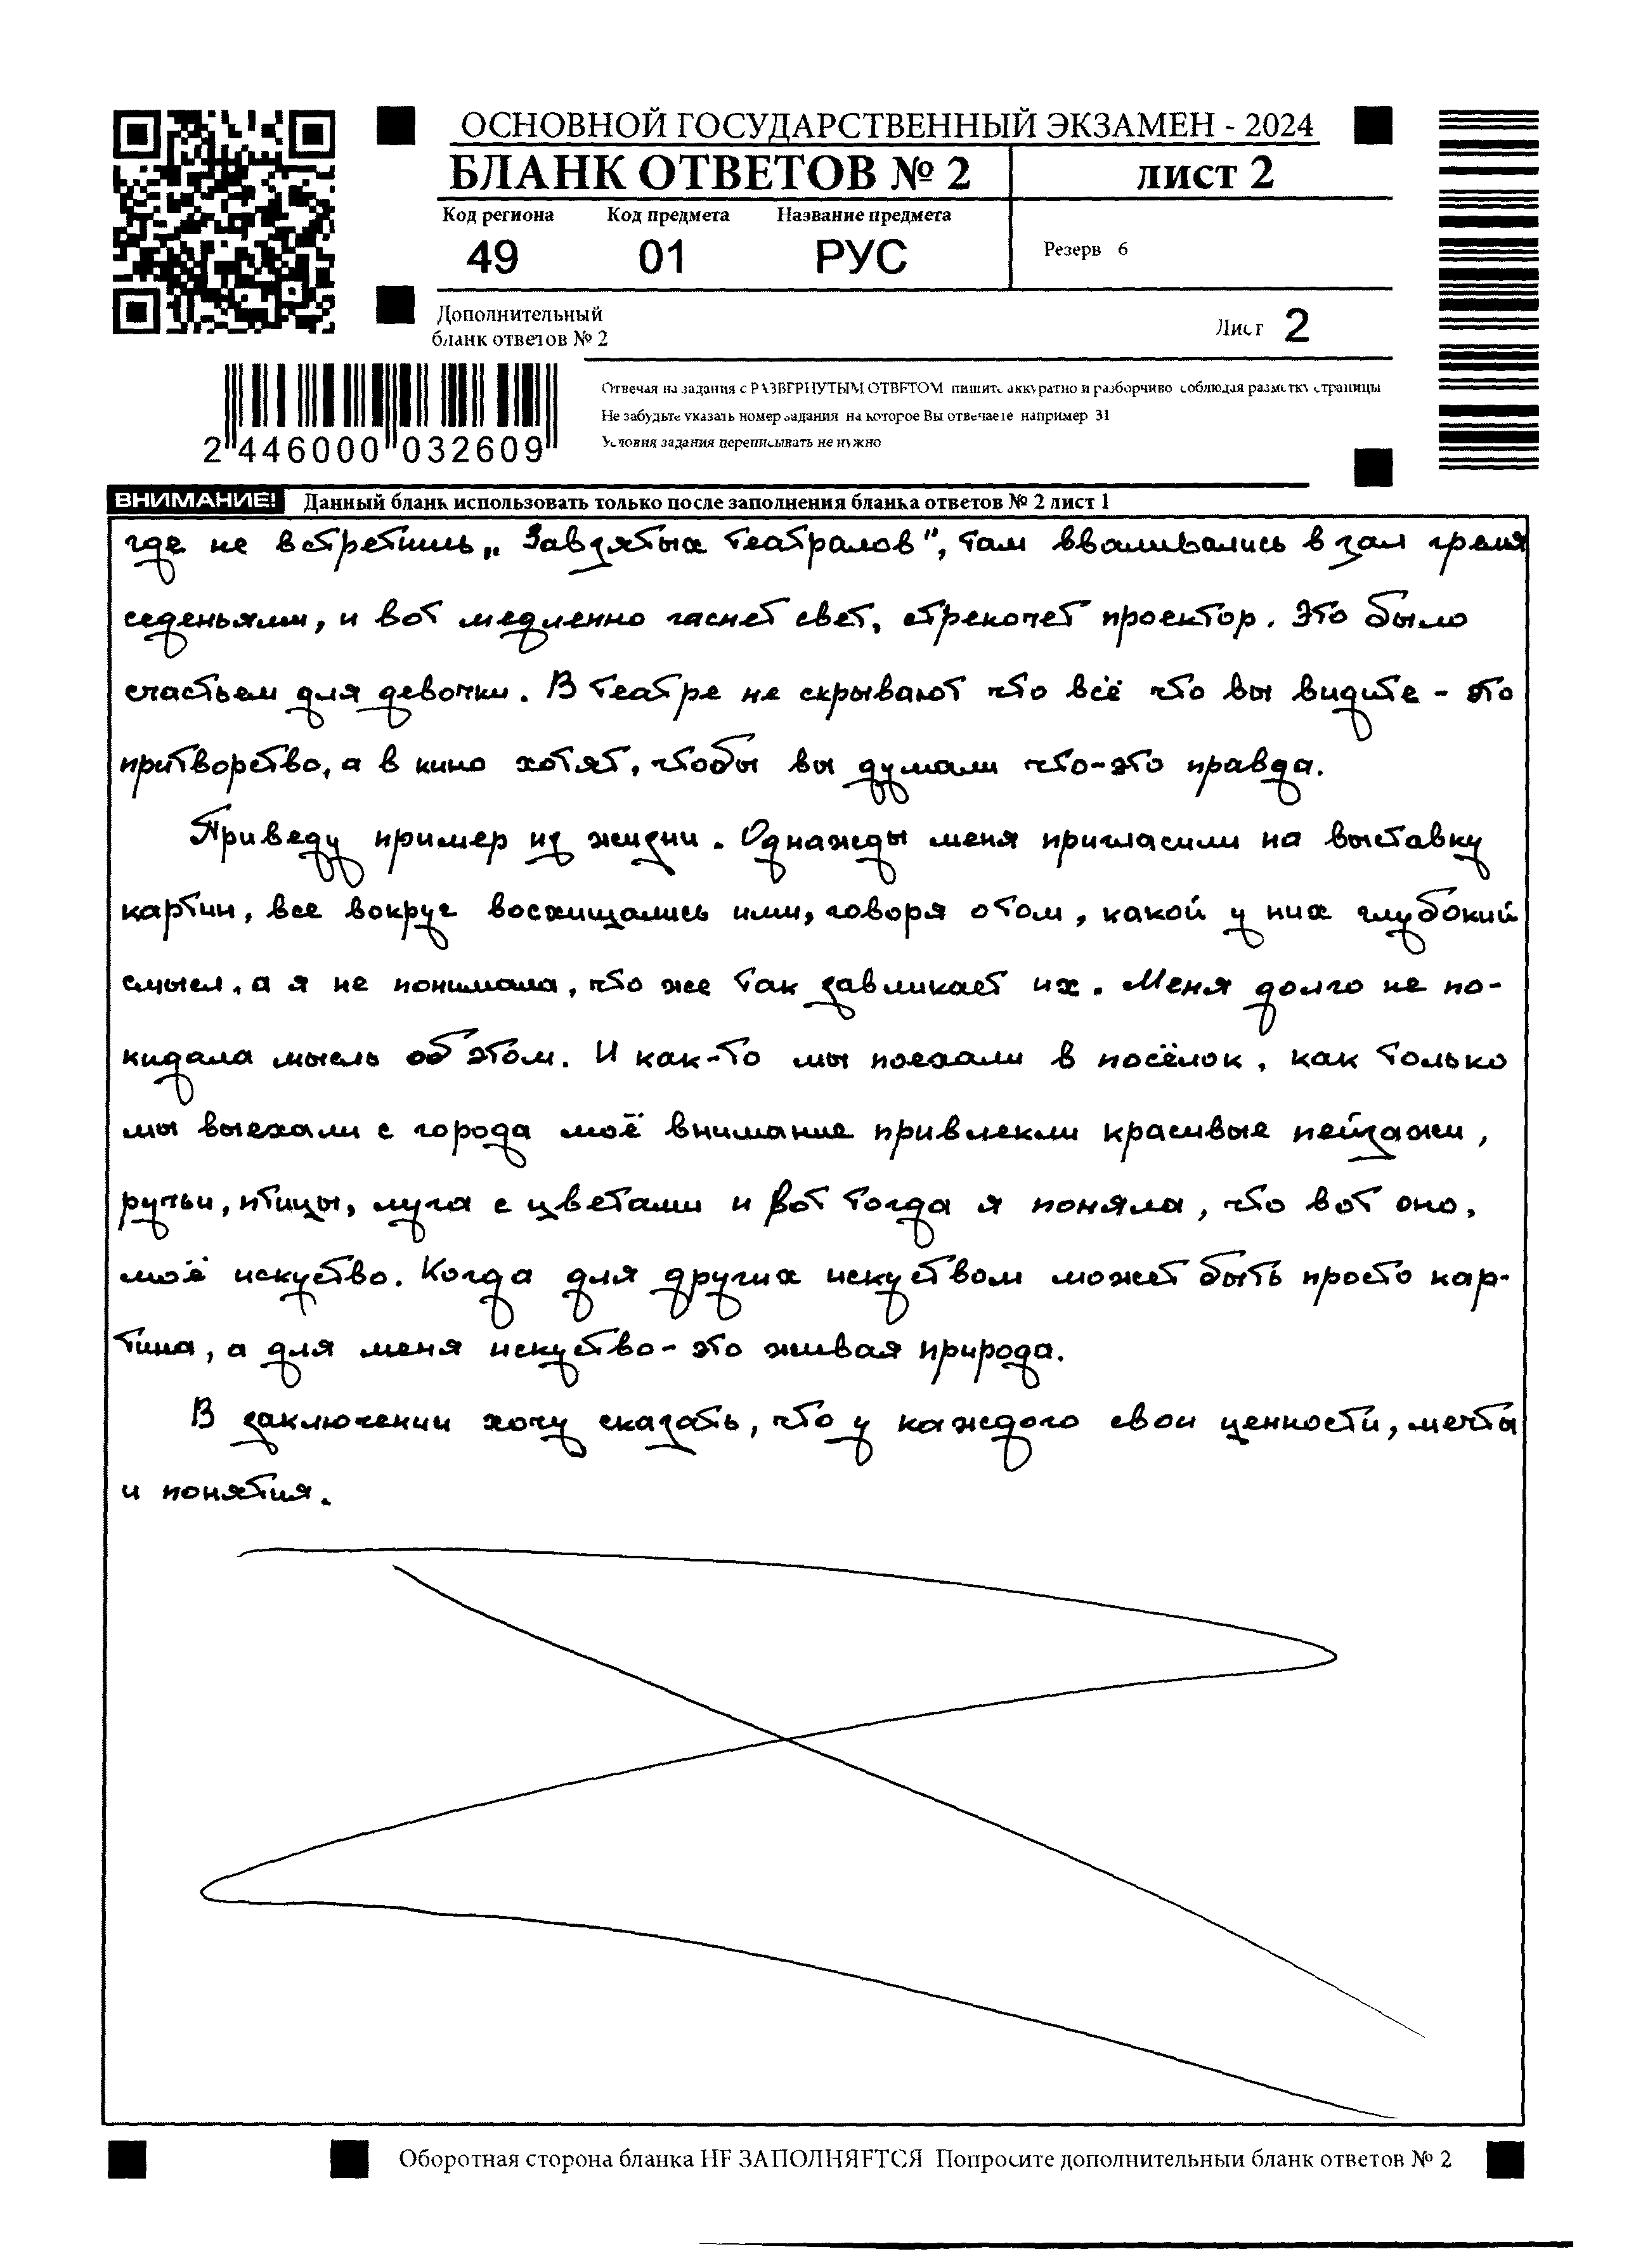 ОСНОВНОЙ ГОСУДАРСТВЕННЫЙ ЭКЗАМЕН - 2024
БЛАНК ОТВЕТОВ № 2 лист 2
Код региона Код предмета Название предмета
49 01 РУС
Резерв 6
Дополнительный
бланк ответов № 2
Лист 2
Отвечая на задания с РАЗВЕРНУТЫМ ОТВЕТОМ пишите аккуратно и разборчиво соблюдая разметку страницы
Не забудьте указать номер задания на которое Вы отвечаете например 31
Условия задания переписывать не нужно
2 446000 032609
ВНИМАНИЕ! Данный бланк использовать только после заполнения бланка ответов № 2 лист 1
где не встретишь „Завзятых театралов", там вваливались в зал гремя
сиденьями, и вот медленно гаснет свет, стрекочет проектор. Это было
счастьем для девочки. В театре не скрывают что всё что вы видите - это
притворство, а в кино хотят, чтобы вы думали что-это правда.
Приведу пример из жизни. Однажды меня пригласили на выставку
картин, все вокруг восхищались ими, говоря о том, какой у них глубокий
смысл, а я не понимала, что же так завликает их. Меня долго не по-
кидала мысль об этом. И как-то мы поехали в посёлок, как только
мы выехали с города моё внимание привлекли красивые пейзажи,
ручьи, птицы, луга с цветами и вот тогда я поняла, что вот оно,
моё искуство. Когда для других искуством может быть просто кар-
тина, а для меня искуство - это живая природа.
В заключении хочу сказать, что у каждого свои ценности, мечты
и понятия.
Оборотная сторона бланка НЕ ЗАПОЛНЯЕТСЯ Попросите дополнительный бланк ответов № 2